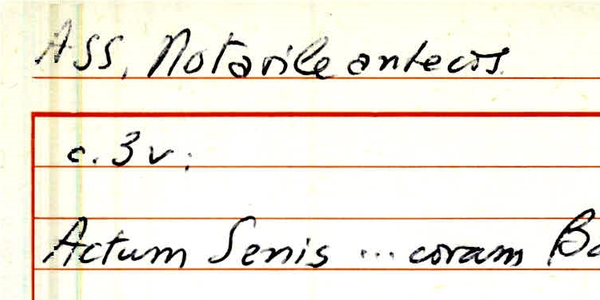 ASS, Notarile antecos.
c. 3v.
Actum Senis ... coram Ba